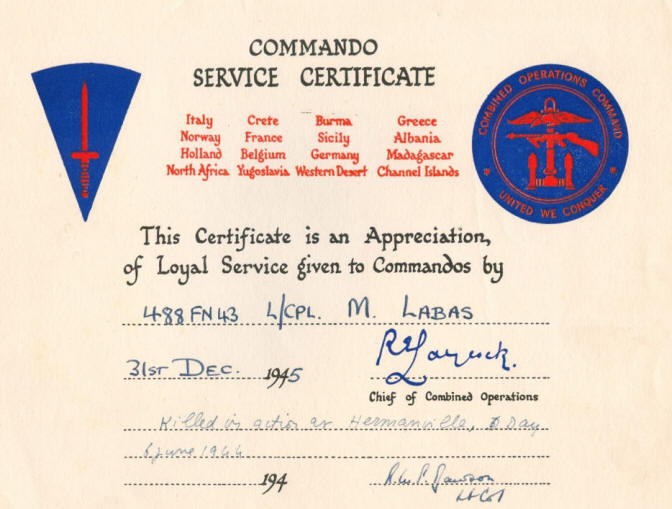 COMMANDO
SERVICE CERTIFICATE
COMBINED OPERATIONS COMMAND
UNITED WE CONQUER
Italy Crete Burma Greece
Norway France Sicily Albania
Holland Belgium Germany Madagascar
North Africa Yugoslavia Western Desert Channel Islands
This Certificate is an Appreciation,
of Loyal Service given to Commandos by
488 FN 43 L/CPL. M. LABAS
31ST DEC. 1945
R E Laycock.
Chief of Combined Operations
Killed in action at Hermanville, D Day
6 June 1944
194 R.W.P. Dawson
Lt Col